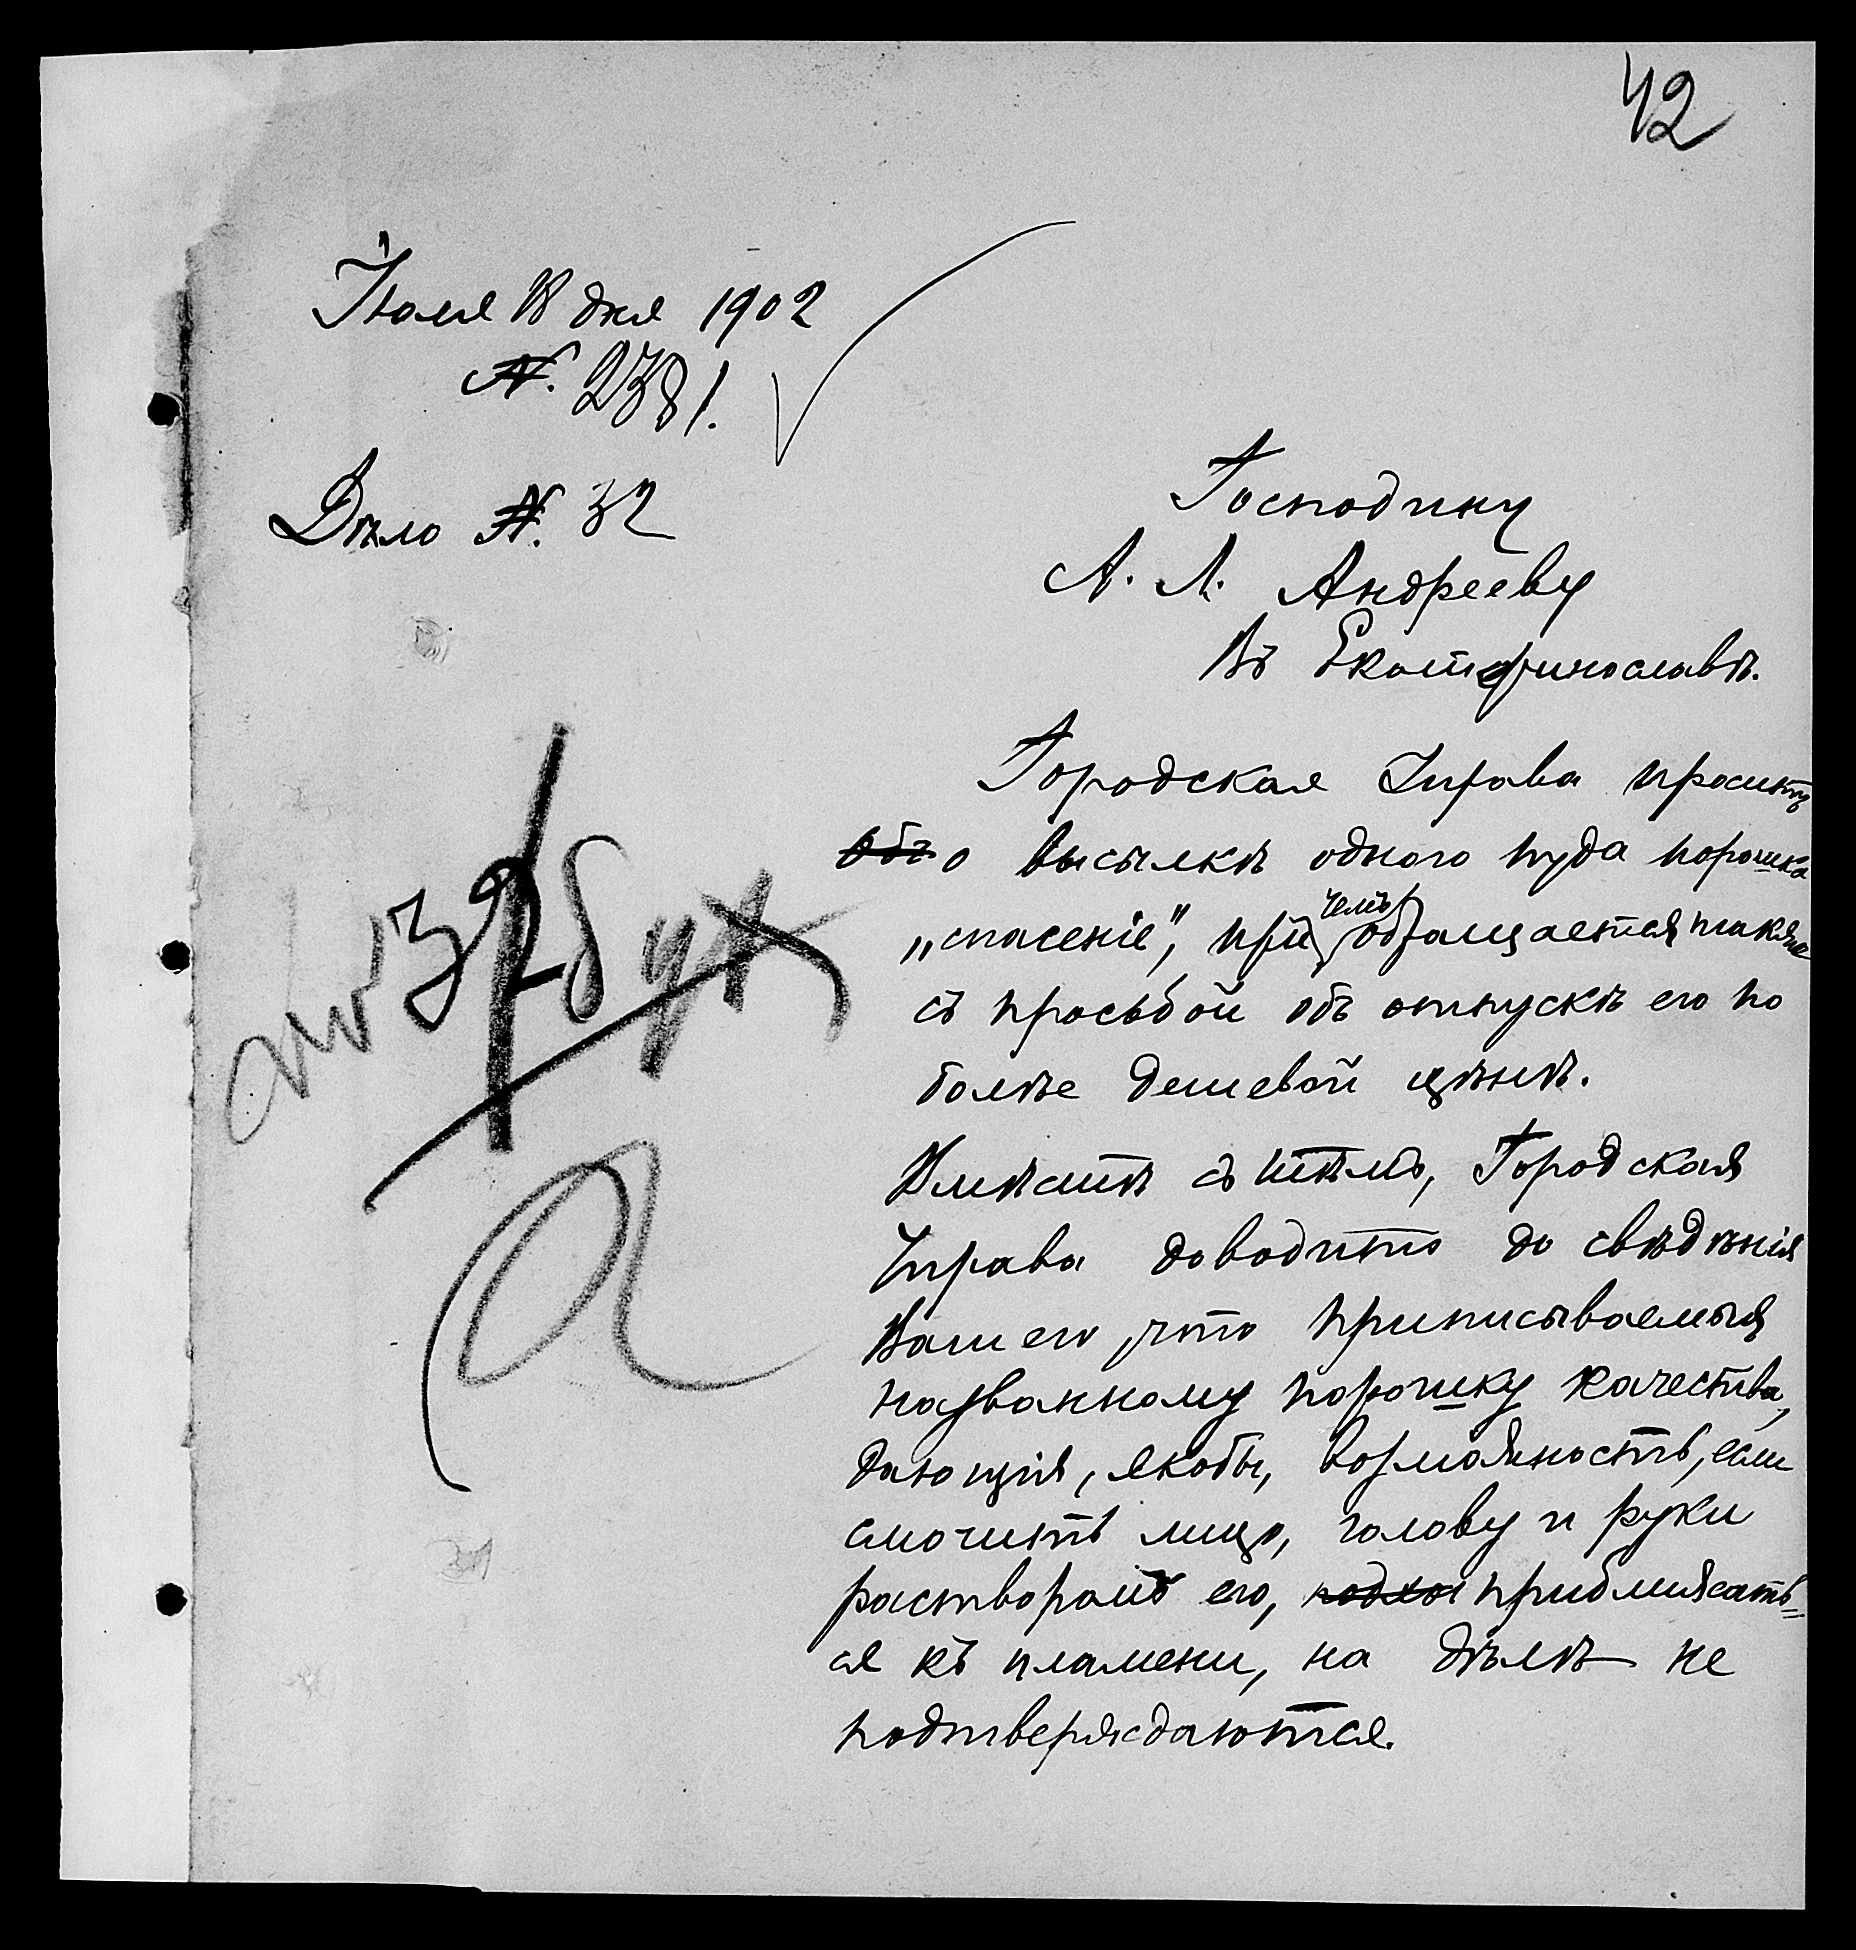 42
Іюля 18 дня 1902
№. 2381.
Дѣло №. 32
Господину
А. Л. Андрееву
Въ Екатеринославѣ.
Городская Управа проситъ
объ о высылкѣ одного пуда порошка
„спасеніе", при чемъ обращается также
съ просьбой объ отпускѣ его по
болѣе дешевой цѣнѣ.
Вмѣстѣ съ тѣмъ, Городская
Управа доводитъ до свѣдѣнія
Вашего, что приписываемыя
названному порошку качества,
дающія, якобы, возможность, если
смочить лицо, голову и руки
растворомъ его, подхо приближать=
ся къ пламени, на дѣлѣ не
подтверждаются.